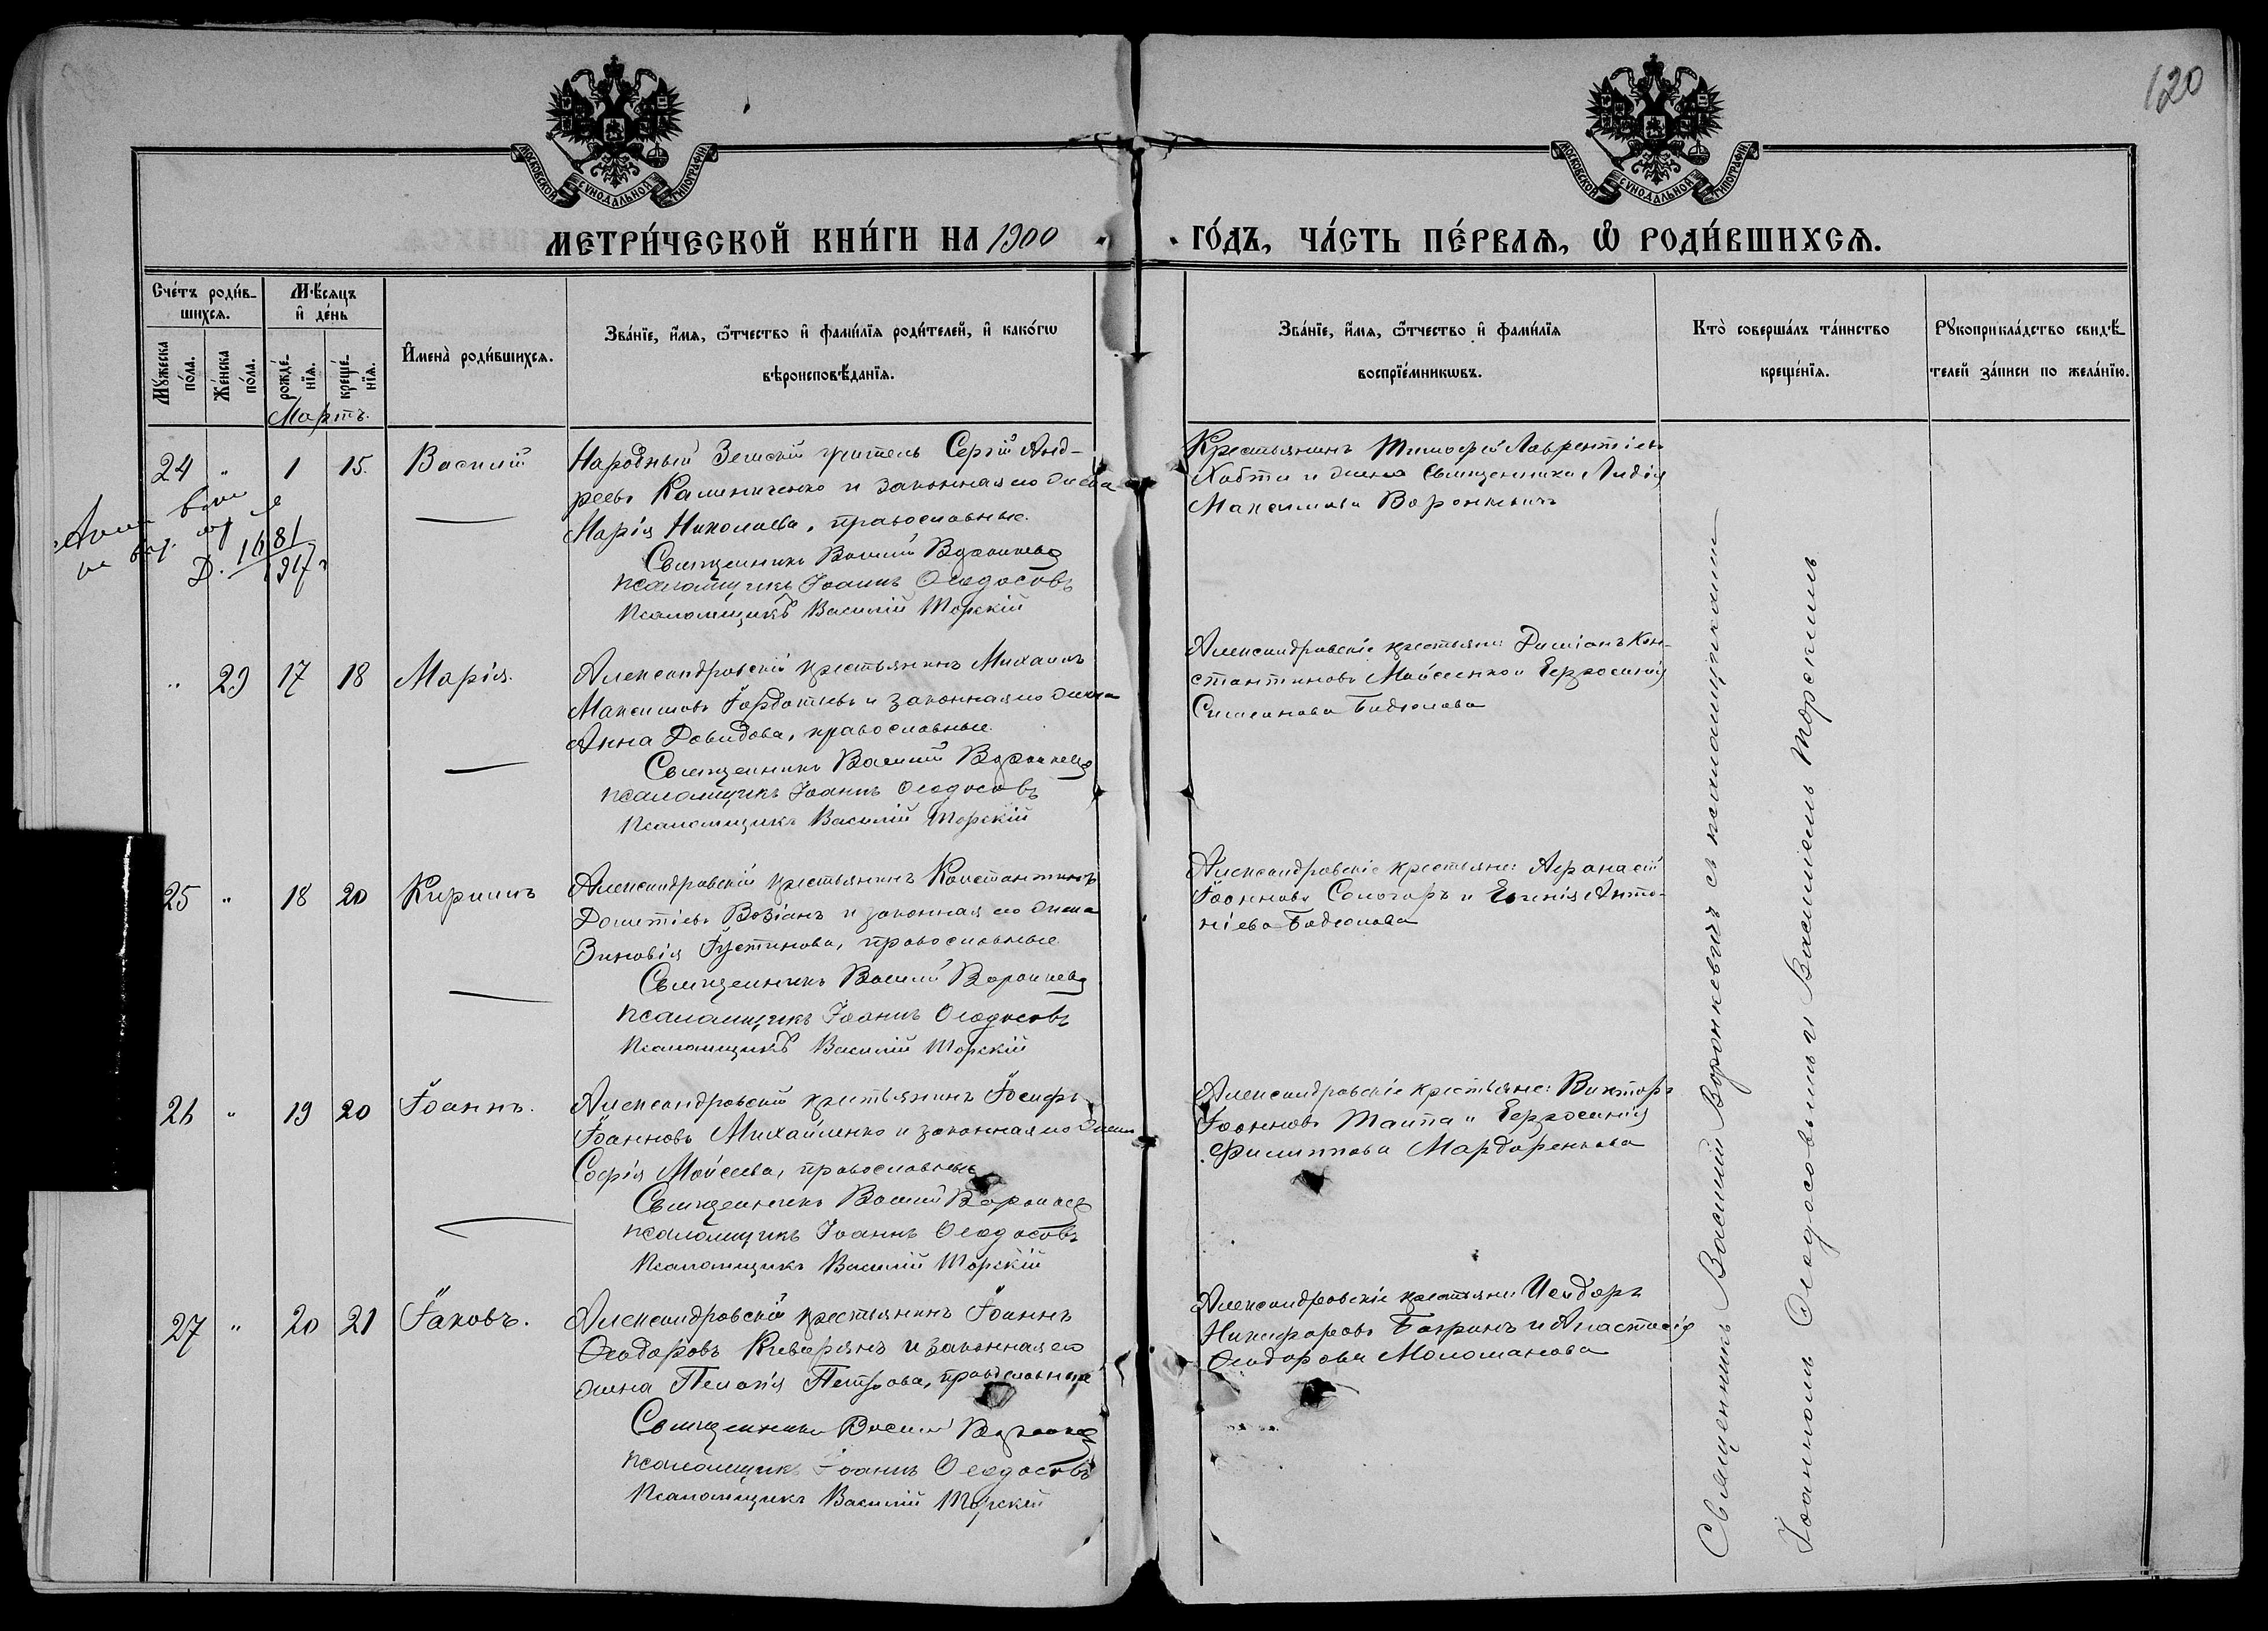 120
МОСКОВСКОЙ СѴНОДАЛЬНОЙ ТИПОГРАФІИ
МОСКОВСКОЙ СѴНОДАЛЬНОЙ ТИПОГРАФІИ
МЕТРИ́ЧЕСКОЙ КНИ́ГИ НА 1900 ГО́ДЪ, ЧА́СТЬ ПЕ́РВАѦ, Ѽ РОДИ́ВШИХСѦ.
Сче́тъ роди́в-
шихсѧ.
Мѣ́сѧцъ
и҆ де́нь
Мꙋ́жеска
по́ла.
Же́нска
по́ла.
рожде́-
нїѧ.
креще́-
нїѧ.
И҆мена̀ роди́вшихсѧ.
Зва́нїе, и҆́мѧ, ѻ҆́тчество и҆ фами́лїѧ роди́телей, и҆ како́гѡ
вѣроисповѣ́данїѧ.
Зва́нїе, и҆́мѧ, ѻ҆́тчество и҆ фами́лїѧ
воспрїе́мникѡвъ.
Кто̀ соверша́лъ та́инство
креще́нїѧ.
Рꙋкоприкла́дство свидѣ́-
телей за́писи по жела́нїю.
Мартъ.
24 " 1 15. Василій
Народный Земскій учитель Сергій Анд-
реевъ Калиниченко и законная его жена
Марія Николаева, православные.
Священникъ Василій Воронкевич
псаломщикъ Іоаннъ Ѳеодосовъ
Псаломщикъ Василій Торскій
Крестьянинъ Тимофей Лаврентіевъ
Хобта и жена Священника Лидія
Максимова Воронкевичъ
Д. 1681
917 г
" 29 17 18 Марія.
Александровскій крестьянинъ Михаилъ
Максимовъ Гордотьевъ и законная его жена
Анна Давидова, православные.
Священникъ Василій Воронкевич
псаломщикъ Іоаннъ Ѳеодосовъ
Псаломщикъ Василій Торскій
Александровскіе крестьяне: Диміанъ Кон-
стантиновъ Мойсеенко и Евфросинія
Симеонова Бадюлова
25 " 18 20 Кириллъ
Александровскій крестьянинъ Константинъ
Дометіевъ Возіанъ и законная его жена
Зиновія Іустинова, православные
Священникъ Василій Воронкевич
псаломщикъ Іоаннъ Ѳеодосовъ
Псаломщикъ Василій Торскій
Александровскіе крестьяне: Афанасій
Іоанновъ Сологоръ и Евгенія Анто-
ніева Бадюлова
26 " 19 20 Іоаннъ.
Александровскій крестьянинъ Іосифъ
Іоанновъ Михайленко и законная его жена
Софія Мойсеева, православные
Священникъ Василій Воронкевич
псаломщикъ Іоаннъ Ѳеодосовъ
Псаломщикъ Василій Торскій
Александровскіе крестьяне: Викторъ
Іоанновъ Таипа и Евфросинія
Филиппова Мардаренкова
27 " 20 21 Іаковъ.
Александровскій крестьянинъ Іоаннъ
Ѳеодоровъ Киверянъ и законная его
жена Пелагія Петрова, православные
Священникъ Василій Воронкевич
псаломщикъ Іоаннъ Ѳеодосовъ
Псаломщикъ Василій Торскій
Александровскіе крестьяне Исидоръ
Никифоровъ Багринъ и Анастасія
Ѳеодорова Моломанова
Священникъ Василій Воронкевичъ съ псаломщиками
Іоанномъ Ѳеодосовымъ и Василіемъ Торскимъ